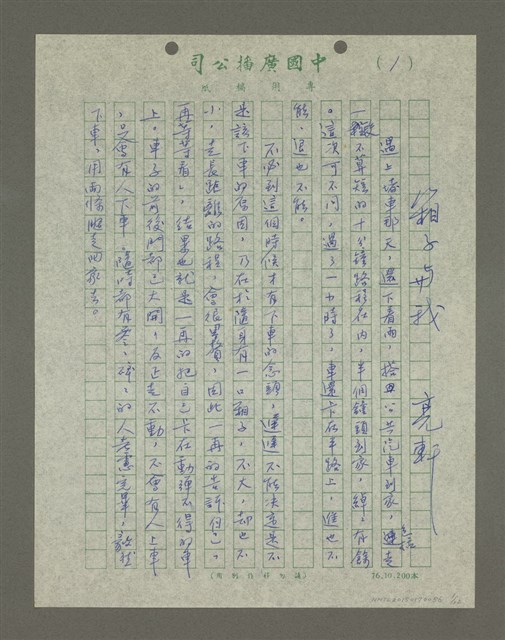 中國廣播公司
專用稿紙
(1)
箱子與我　亮軒
遇上塞車那天，還下着雨，搭公共汽車到家，連走這
一段不算短的十分鐘路程在內，半個鐘頭到家，綽、有餘
。這次可不同，過了一小時了，車還卡在半路上，進也不
能、退也不能。
不必到這個時候才有下車的念頭，遲遲不能決定是不
是該下車的原因，乃在於隨身有一口箱子，不大，却也不
小，走長距離的路程，會很累贅，因此一再的告訴自己、
再等等看，結果也就是一再的把自己卡在動彈不得的車
上。車子的前後門都已大開，反正走不動，不會有人上車
，只會有人下車，隨時都有零、碎、的人考慮完畢，毅然
下車，用兩條腿走回家去。
76.10.200本